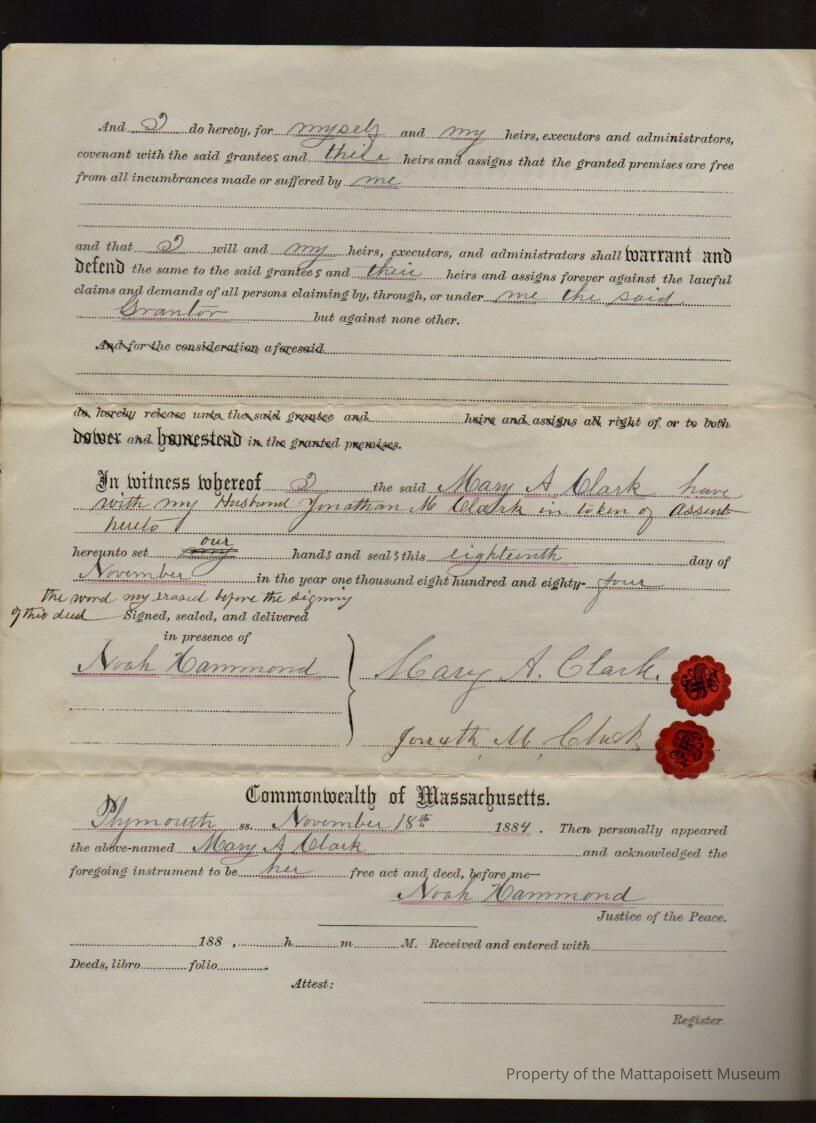 And I do hereby, for myself and my heirs, executors and administrators,
covenant with the said grantees and their heirs and assigns that the granted premises are free
from all incumbrances made or suffered by me
and that I will and my heirs, executors, and administrators shall warrant and
defend the same to the said grantees and their heirs and assigns forever against the lawful
claims and demands of all persons claiming by, through, or under me the said
Grantor but against none other.
And for the consideration aforesaid
do hereby release unto the said grantee and heirs and assigns all right of or to both
dower and homestead in the granted premises.
In witness whereof I the said Mary A Clark have
with my Husband Jonathan M Clark in token of assent
hereto
our
hereunto set my hands and seals this eighteenth day of
November in the year one thousand eight hundred and eighty-four
the word my erased before the signing
of this deed Signed, sealed, and delivered
in presence of
Noah Hammond Mary A. Clark.
Jonath. M. Clark
Commonwealth of Massachusetts.
Plymouth ss. November 18th 1884. Then personally appeared
the above-named Mary A Clark and acknowledged the
foregoing instrument to be her free act and deed, before me—
Noah Hammond
Justice of the Peace.
188 , h m M. Received and entered with
Deeds, libro folio .
Attest:
Register.
Property of the Mattapoisett Museum